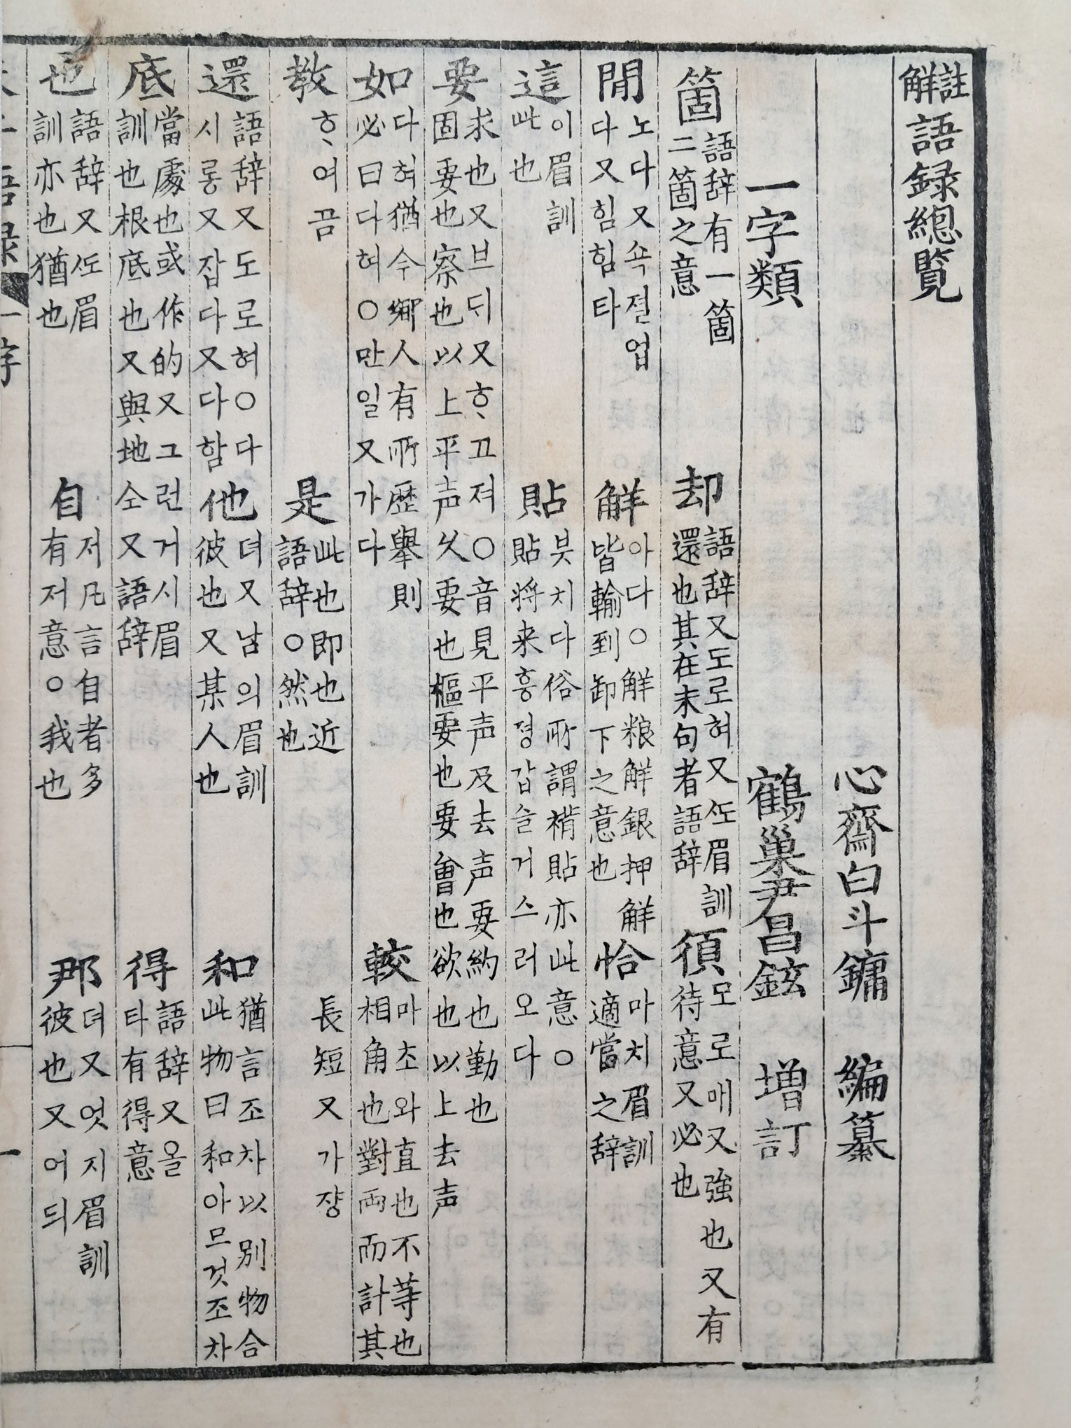 註解語録總覧
心齋白斗鏞 編纂
一字類 鶴巢尹昌鉉 増訂
箇 語辞有一箇二箇之意 却 語辞又도로혀又셩眉訓還也其在末句者語辞 須 모로매又強也又有待意又必也
閒 노다又쇽졀업다又힘힘타 解 아다○解粮解銀押解皆輸到卸下之意也 恰 마치眉訓適當之辞
這 이眉訓此也 貼 븟치다俗所謂褙貼亦此意○貼将来흥졍갑슬거스러오다
要 求也又브듸又ᄒᆞ고져○音見平声及去声要約也勤也固要也察也以上平声久要也樞要也要會也欲也以上去声
如 다혀猶今郷人有所歴擧則必曰다혀○만일又가다 較 마초와直也不等也相角也對両而計其
長短又가쟝
教 ᄒᆞ여곰 是 此也即也近語辞○然也
還 語辞又도로혀○다시롱又잡다又다함 他 뎌又남의眉訓彼也又某人也 和 猶言조차以別物合此物曰和아므것조차
底 當處也或作的又그런거시眉訓也根底也又與地仝又語辞 得 語辞又올타有得意
也 語辞又셩眉訓亦也猶也 自 저凡言自者多有저意○我也 那 뎌又엇지眉訓彼也又어듸